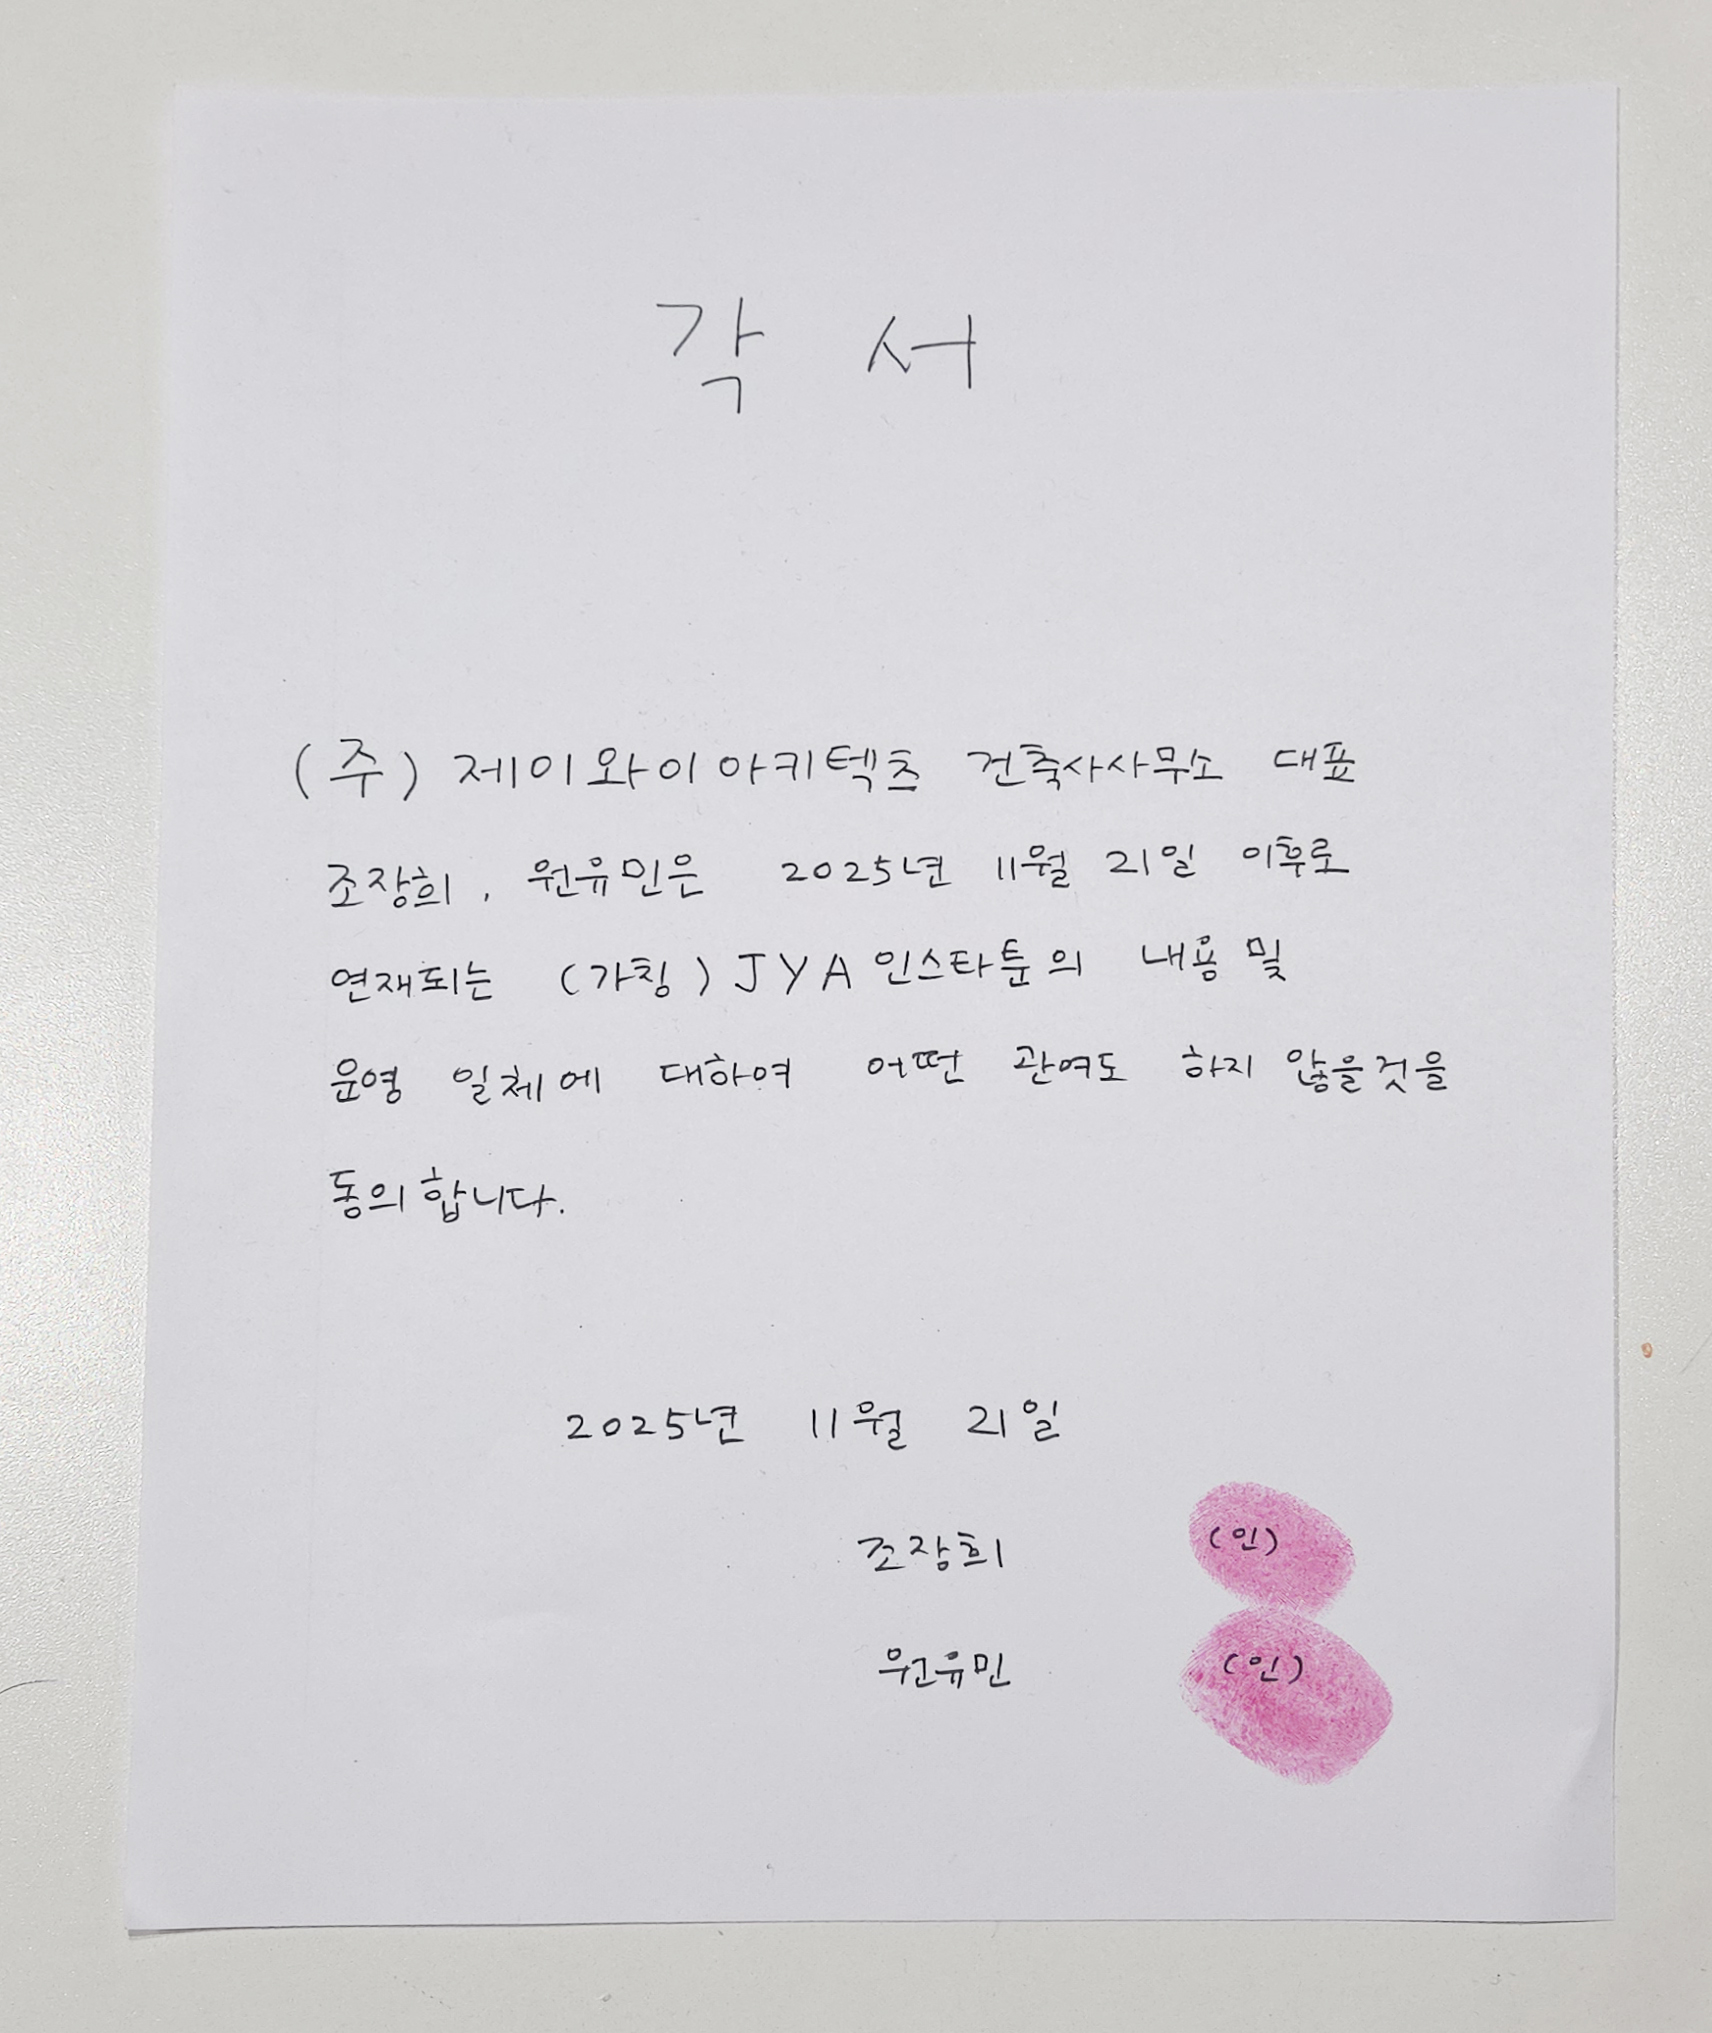 각 서
(주) 제이와이아키텍츠 건축사사무소 대표
조장희, 원유민은 2025년 11월 21일 이후로
연재되는 (가칭) JYA 인스타툰의 내용 및
운영 일체에 대하여 어떤 관여도 하지 않을것을
동의합니다.
2025년 11월 21일
조장희 (인)
원유민 (인)